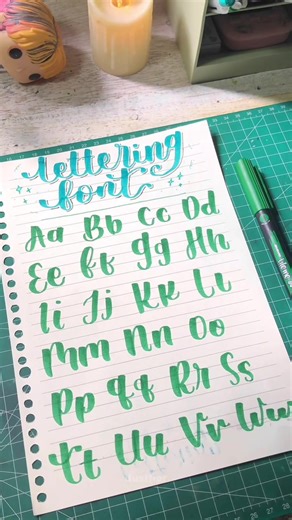 lettering
font
Aa Bb Cc Dd
Ee ff Gg Hh
Ii Jj Kk Ll
Mm Nn Oo
Pp qq Rr Ss
Tt Uu Vv Ww